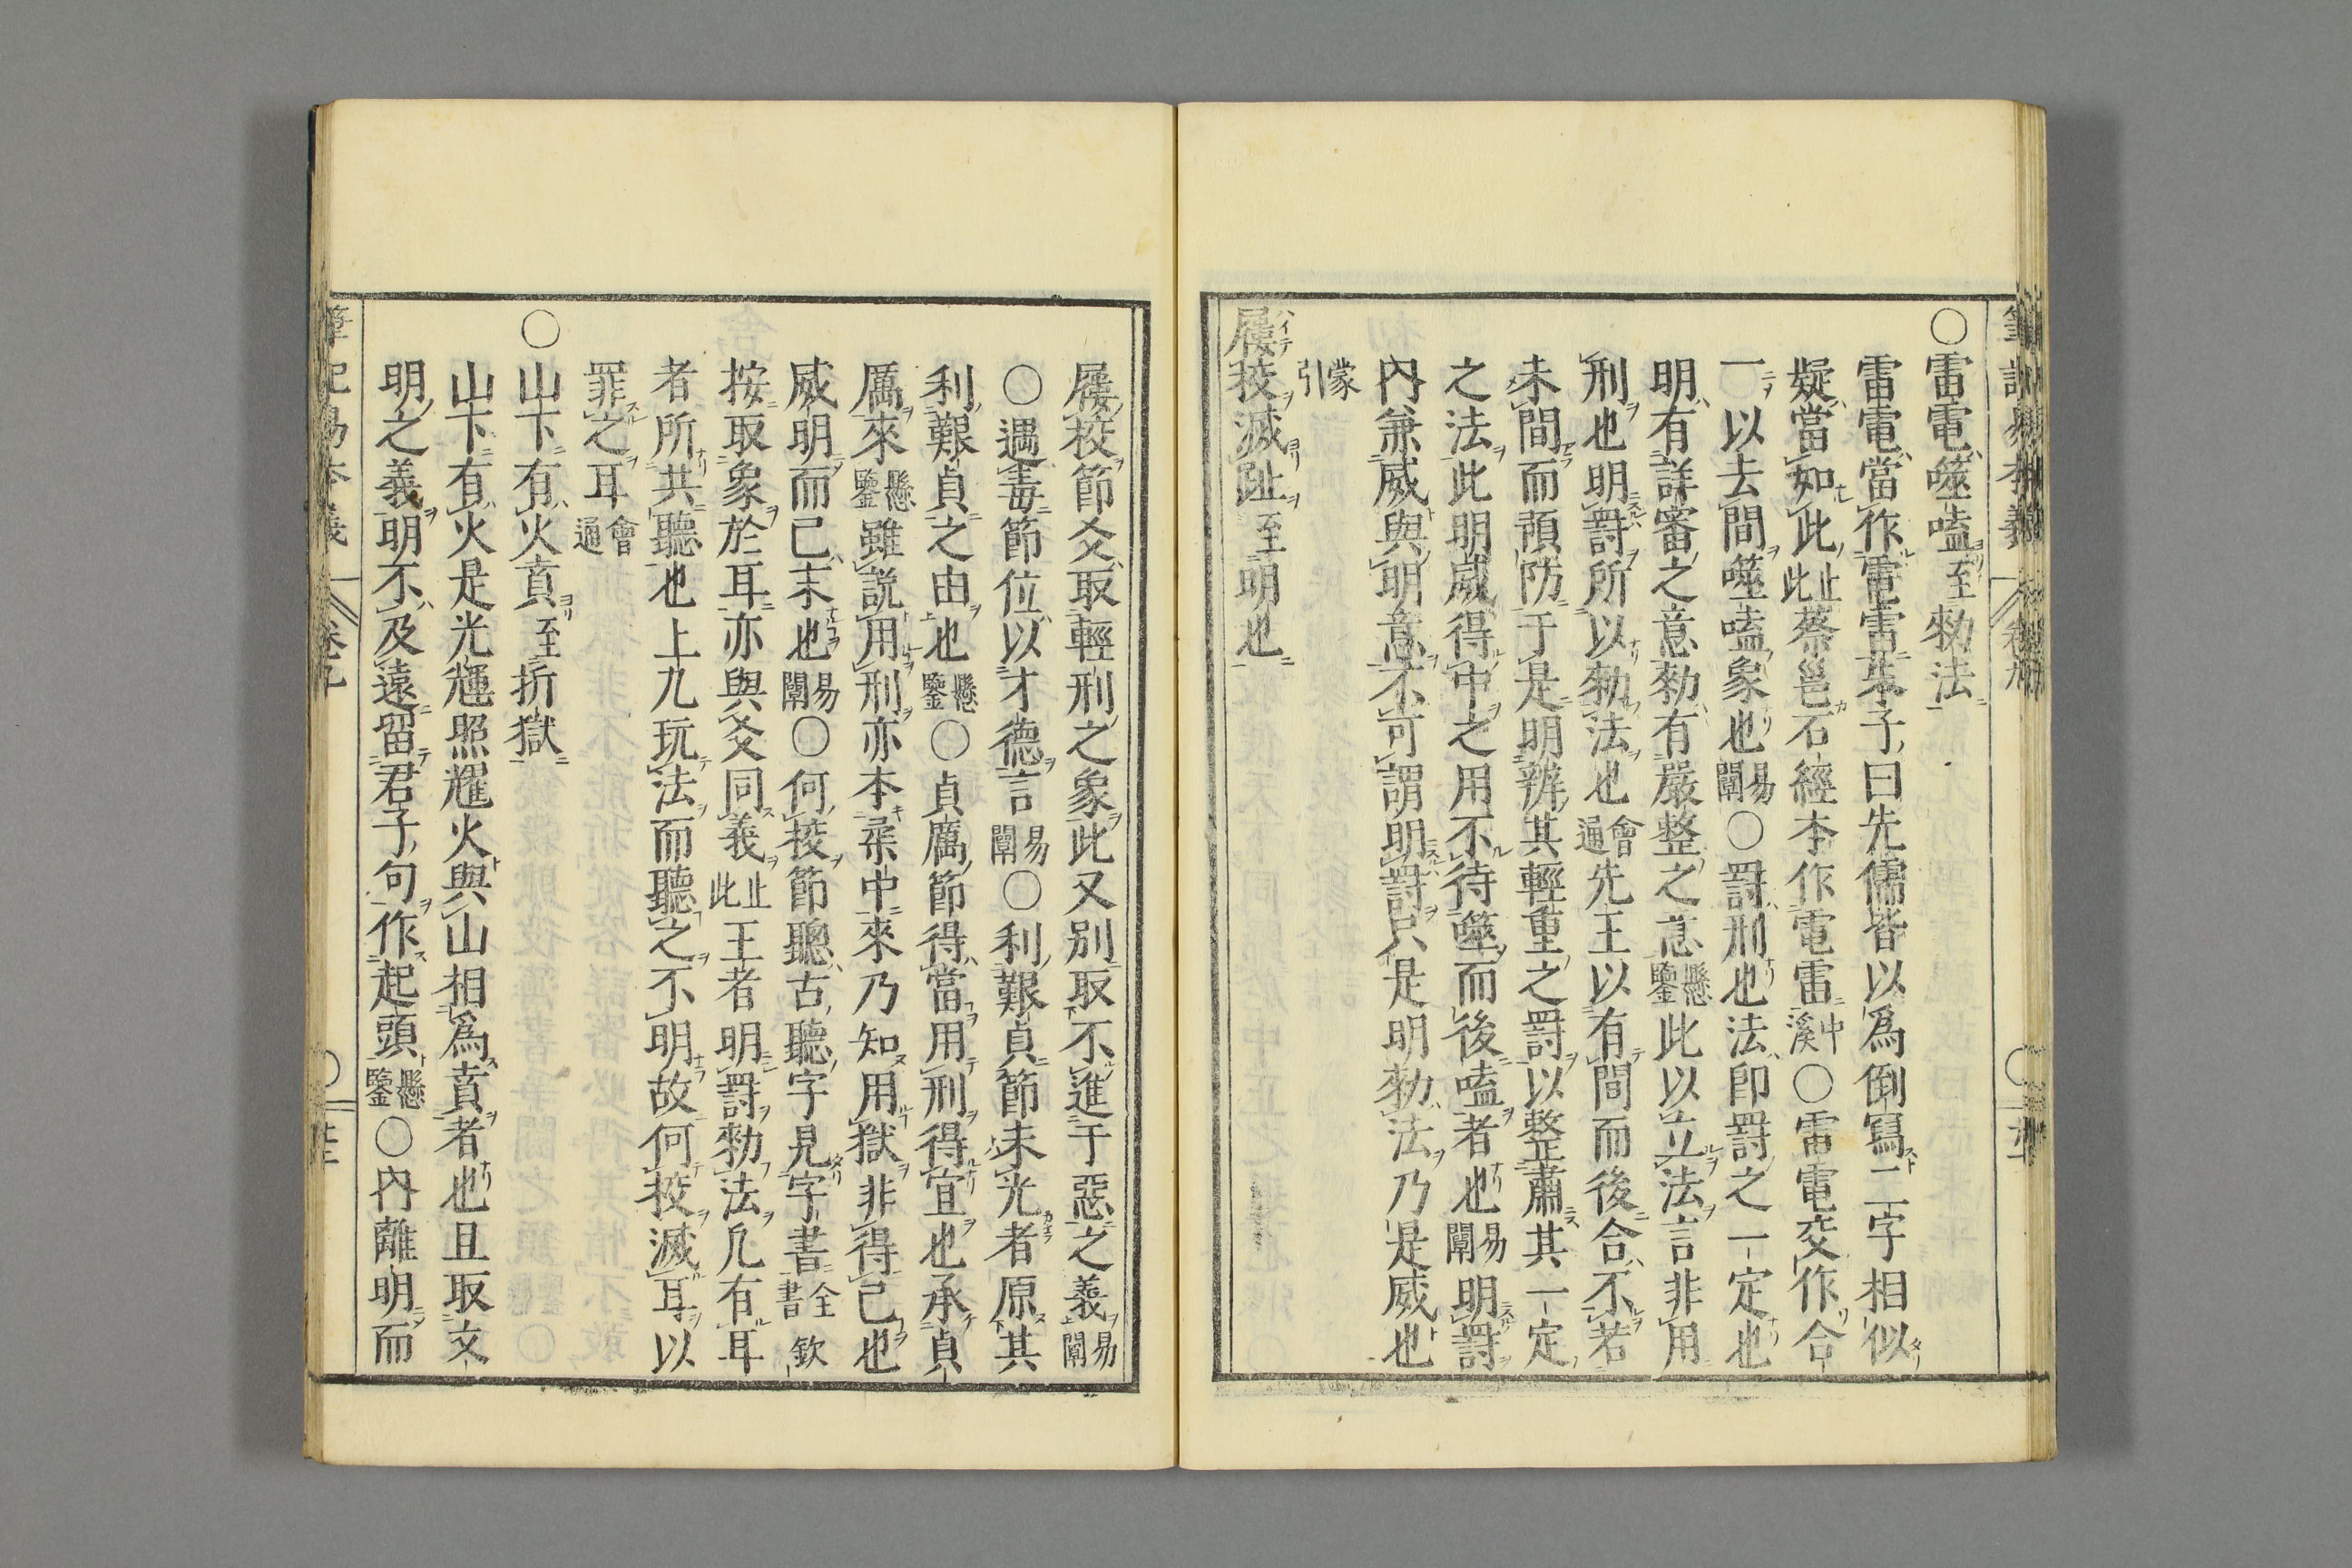 ○雷電噬嗑至勑法
雷電當作電雷朱子曰先儒皆以為倒寫二字相似
疑當如此止此蔡邕石經本作電雷中溪○雷電交作合
一以去間噬嗑象也易闡○罰刑也法卽罰之一定也
明有詳審之意勑有嚴整之意懸鑒此以立法言非用
刑也明罰所以勑法也會通先王以有間而後合不若
未間而預防于是明辨其輕重之罰以整肅其一定
之法此明威得中之用不待噬而後嗑者也易闡明罰
內兼威與明意不可謂明罰只是明勑法乃是威也
蒙引
屨校滅趾至明也
屨校節爻取輕刑之象此又別取不進于惡之義易闡
○遇毒節位以才德言易闡○利艱貞節未光者原其
利艱貞之由也懸鑒○貞厲節得當用刑得宜也承貞
厲來懸鑒雖説用刑亦本柔中來乃知用獄非得已也
威明而已末也易闡○何校節聰古聽字見字書全書欽
按取象於耳亦與爻同義止此王者明罰勑法凡有耳
者所共聽也上九玩法而聽之不明故何校滅耳以
罪之耳會通
○山下有火賁至折獄
山下有火是光輝照耀火與山相為賁者也且取文
明之義明不及遠留君子句作起頭懸鑒○內離明而